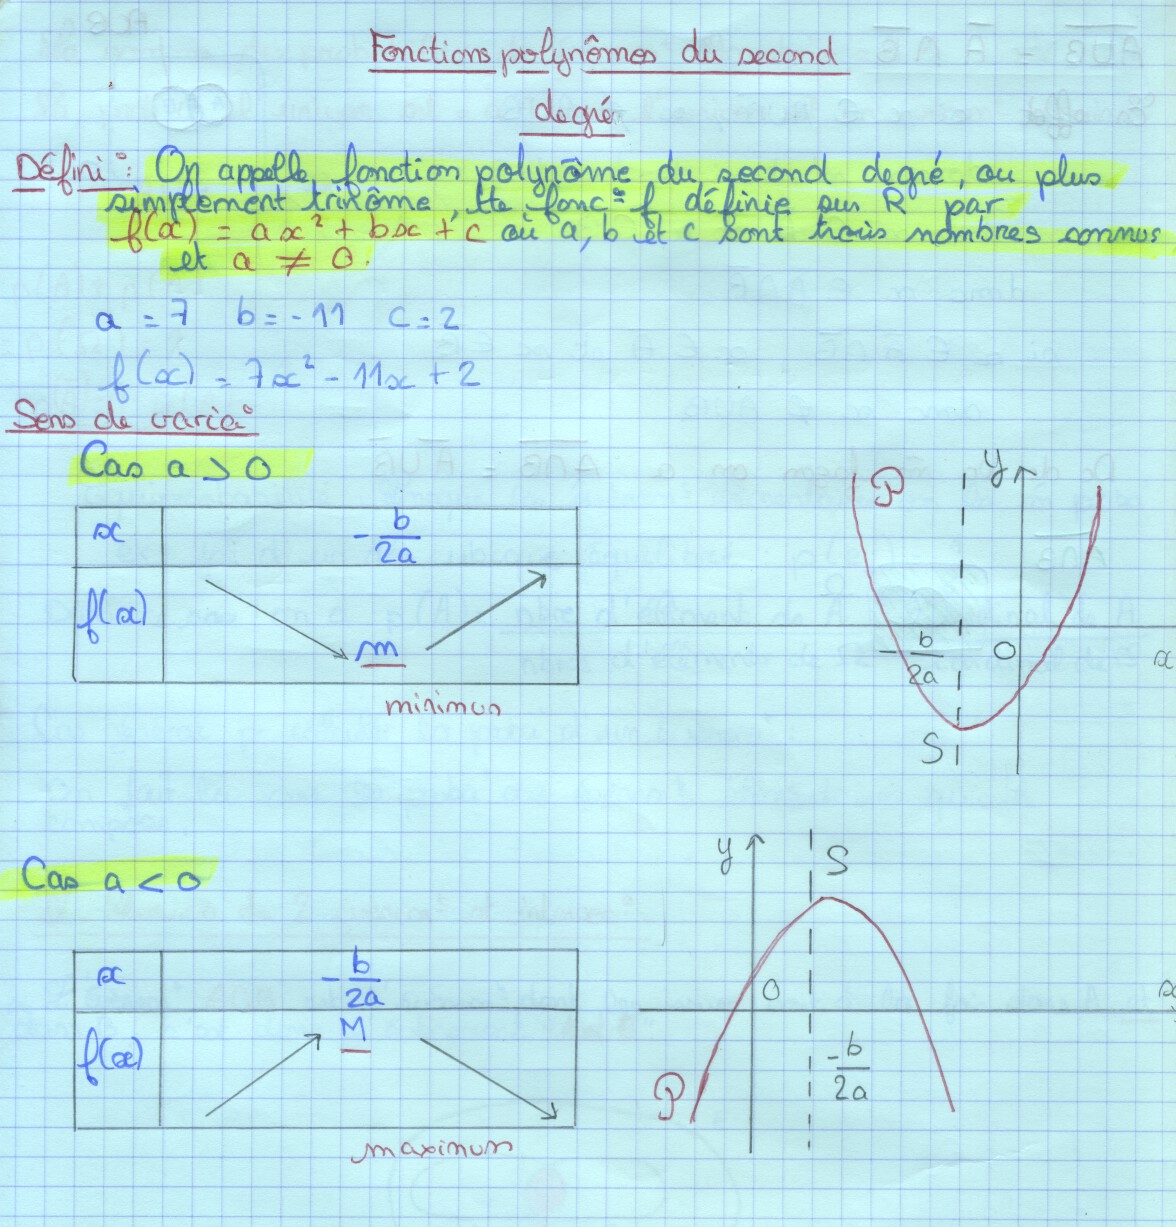 Fonctions polynômes du second
degré
Défini°: On appelle fonction polynôme du second degré, ou plus
simplement trinôme, tte fonc° f définie sur R par
f(x) = ax² + bx + c où a, b et c sont trois nombres connus
et a ≠ 0.
a = 7 b = -11 c = 2
f(x) = 7x² - 11x + 2
Sens de varia°
Cas a > 0
x -b/2a
f(x) m
minimun
P y
-b/2a O x
S
Cas a < 0
x -b/2a
f(x) M
maximum
y S
O x
-b/2a
P